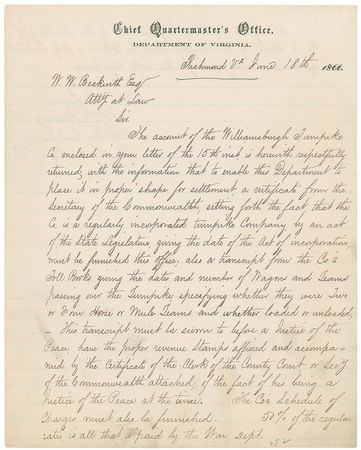 Chief Quartermaster's Office,
DEPARTMENT OF VIRGINIA.
Richmond Va June 18th 1866.
W. W. Beckwith Esq
Atty at Law
Sir
The account of the Williamsburgh Turnpike
Co. enclosed in your letter of the 15th inst is herewith respectfully
returned, with the information that to enable this Department to
place it in proper shape for settlement a certificate from the
Secretary of the Commonwealth, setting forth the fact that the
Co. is a regularly incorporated turnpike Company by an act
of the State Legislature, giving the date of the Act of incorporation,
must be furnished this office; also a transcript from the Co's
Toll Books giving the date and number of Wagons and Teams
passing over the Turnpike specifying whether they were Two
or Four Horse or Mule Teams and whether loaded or unloaded,
- This transcript must be sworn to before a Justice of the
Peace, have the proper revenue Stamps affixed and accompa-
nied by the Certificate of the Clerk of the County Court or Secty.
of the Commonwealth attached, of the fact of his being a
Justice of the Peace at the time. The Co's Schedule of
Charges must also be furnished. 50% of the regular
rates is all that is paid by the War Dept.
252